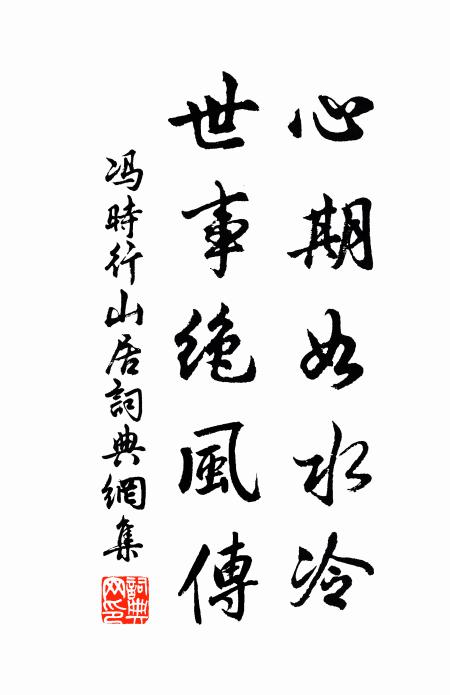 心期如水冷
世事絶風傳
冯時行山居詞典網集
詞典網印